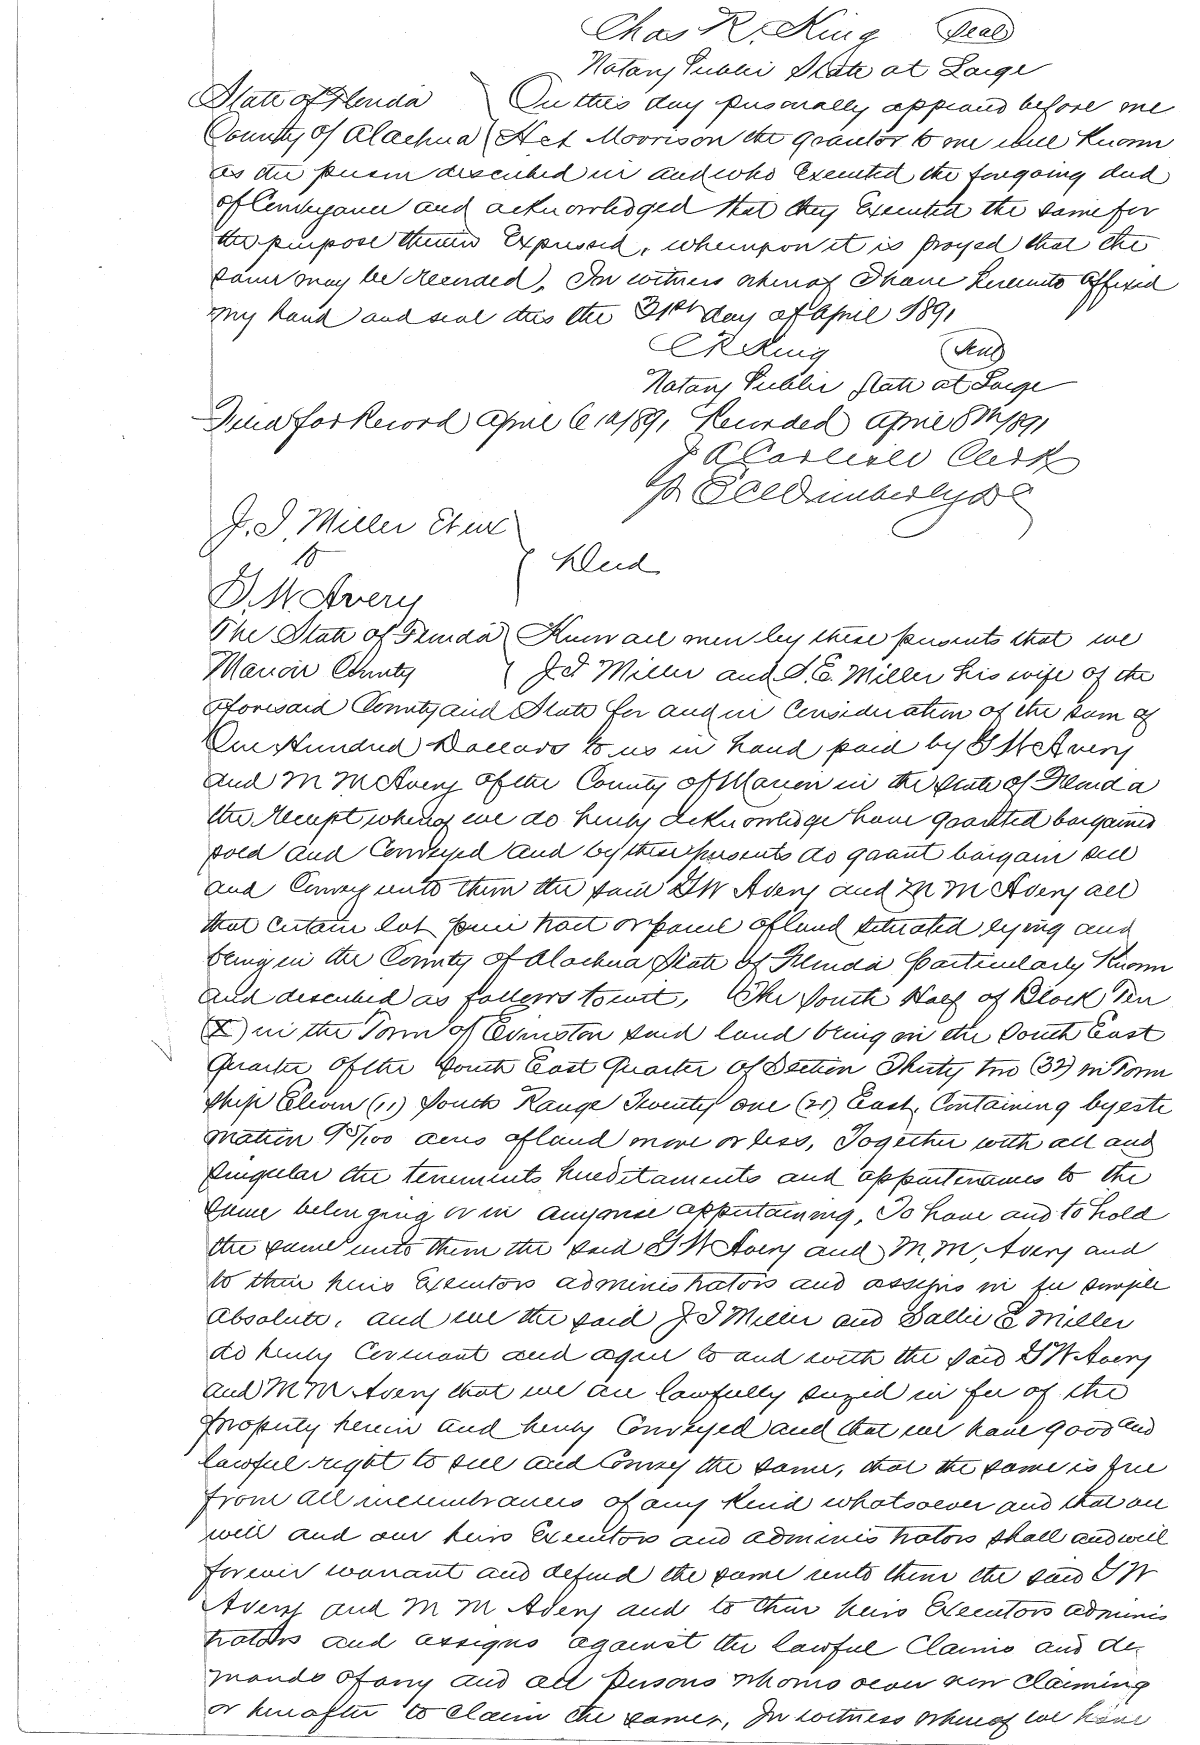 Chas R. King (Seal)
Notary Public State at Large
State of Florida ) On this day personally appeared before me
County of Alachua ( Morrison the grantor to me well known
as the person described in and who Executed the foregoing deed
of Conveyance and acknowledged that they Executed the same for
the purpose therein Expressed, whereupon it is prayed that the
same may be recorded, In witness whereof I have hereunto affixed
my hand and seal this the day of April 1891
C R King (Seal)
Notary Public State at Large
Filed for Record April 6 1891 Recorded April 8th 1891
J A Carlisle Clerk
pr Wimberly D C
J. I. Miller Et ux
to } Deed
G. W. Avery
The State of Florida ) Know all men by these presents that we
Marion County ( J I Miller and S. E. Miller his wife of the
aforesaid County and State for and in Consideration of the sum of
One Hundred Dollars to us in hand paid by G W Avery
and M M Avery of the County of Marion in the State of Florida
the receipt whereof we do hereby acknowledge have granted bargained
sold and Conveyed and by these presents do grant bargain sell
and Convey unto them the said G W Avery and M M Avery all
that certain lot piece tract or parcel of land situated lying and
being in the County of Alachua State of Florida particularly Known
and described as follows to wit, The South Half of Block Ten
(X) in the Town of Evinston said land being in the South East
Quarter of the South East Quarter of Section Thirty two (32) in Town
ship Eleven (11) South Range Twenty one (21) East, Containing by esti
mation /100 acres of land more or less, Together with all and
singular the tenements hereditaments and appurtenances to the
same belonging or in anywise appertaining, To have and to hold
the same unto them the said G W Avery and M. M. Avery and
to their heirs Executors administrators and assigns in fee simple
absolute, and we the said J I Miller and Sallie E Miller
do hereby Covenant and agree to and with the said G W Avery
and M M Avery that we are lawfully seized in fee of the
property herein and hereby Conveyed and that we have good and
lawful right to sell and Convey the same, that the same is free
from all incumbrances of any Kind whatsoever and that we
will and our heirs Executors and administrators shall and will
forever warrant and defend the same unto them the said G W
Avery and M M Avery and to their heirs Executors adminis
trators and assigns against the lawful Claims and de-
mands of any and all persons whomsoever now claiming
or hereafter to claim the same, In witness whereof we have